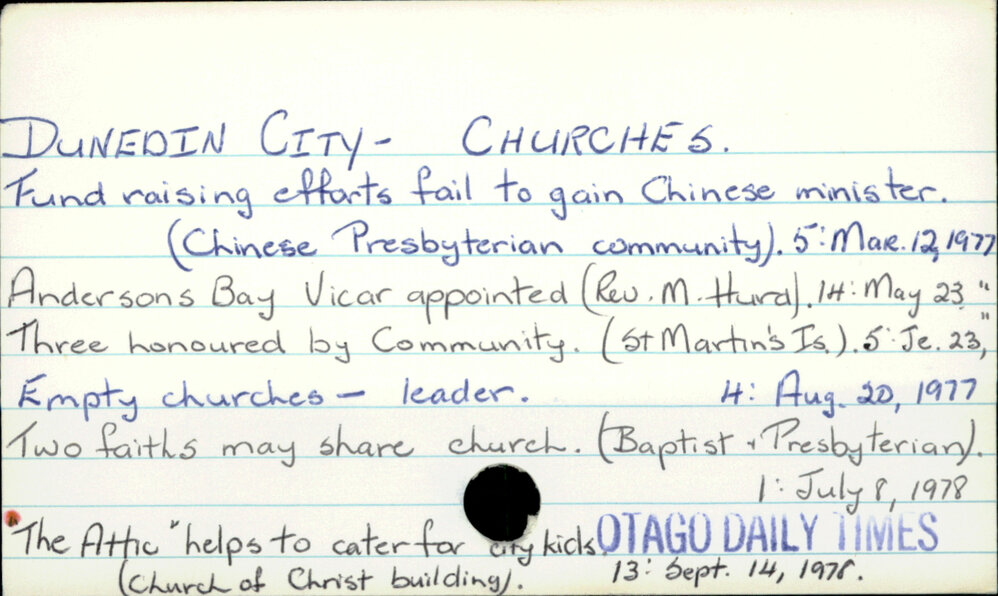 DUNEDIN CITY - CHURCHES.
Fund raising efforts fail to gain Chinese minister.
(Chinese Presbyterian community). 5: Mar. 12, 1977
Andersons Bay Vicar appointed (Rev. M. Hurd). 14: May 23 "
Three honoured by Community. (St Martin's Is.). 5: Je. 23, "
Empty churches - leader. 4: Aug. 20, 1977
Two faiths may share church. (Baptist & Presbyterian).
1: July 8, 1978
"The Attic" helps to cater for city kids. OTAGO DAILY TIMES
(Church of Christ building). 13: Sept. 14, 1978.